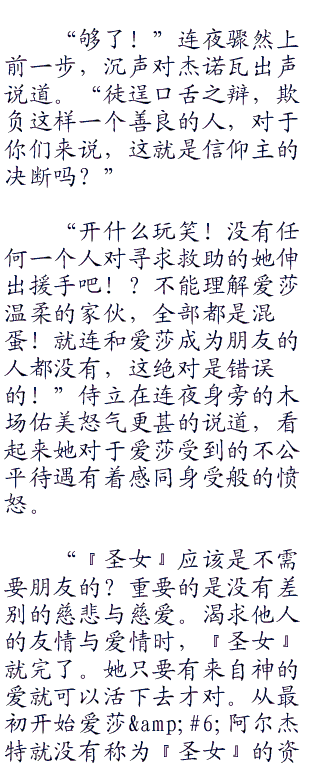 “够了！”连夜骤然上
前一步，沉声对杰诺瓦出声
说道。“徒逞口舌之辩，欺
负这样一个善良的人，对于
你们来说，这就是信仰主的
决断吗？”
“开什么玩笑！没有任
何一个人对寻求救助的她伸
出援手吧！？不能理解爱莎
温柔的家伙，全部都是混
蛋！就连和爱莎成为朋友的
人都没有，这绝对是错误
的！”侍立在连夜身旁的木
场佑美怒气更甚的说道，看
起来她对于爱莎受到的不公
平待遇有着感同身受般的愤
怒。
“『圣女』应该是不需
要朋友的？重要的是没有差
别的慈悲与慈爱。渴求他人
的友情与爱情时，『圣女』
就完了。她只要有来自神的
爱就可以活下去才对。从最
初开始爱莎&amp;#6;阿尔杰
特就没有称为『圣女』的资